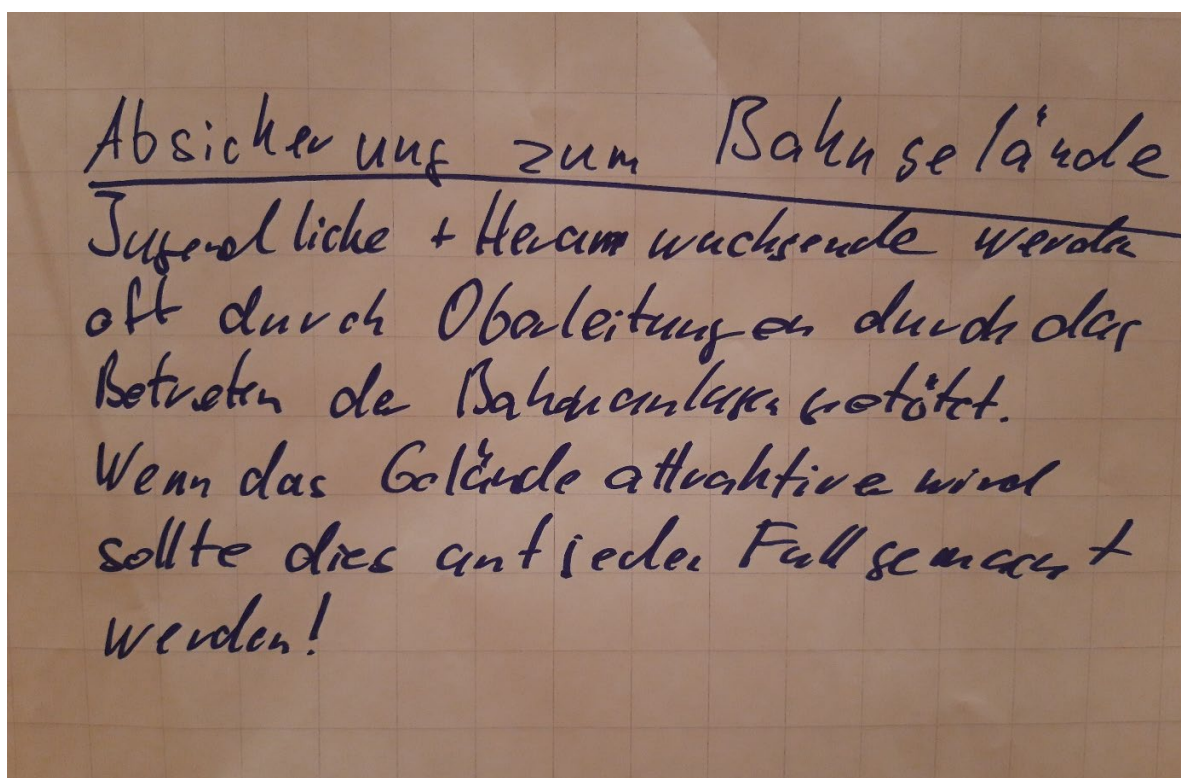 Absicherung zum Bahngelände
Jugendliche + Heranwachsende werden
oft durch Oberleitungen durch das
Betreten der Bahnanlagen getötet.
Wenn das Gelände attraktive wird
sollte dies auf jeden Fall gemacht
werden!